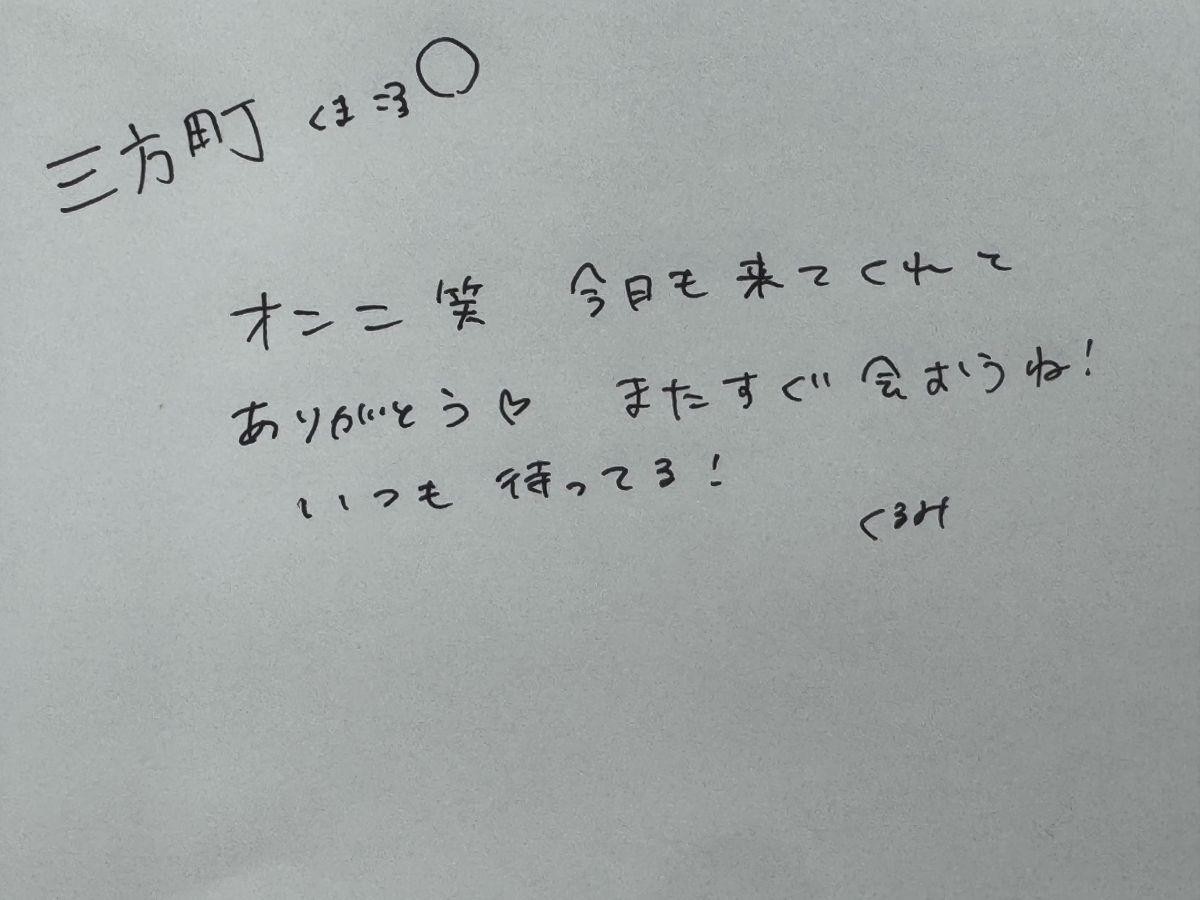 三方町 くまころ○
オンニ笑 今日も来てくれて
ありがとう♡ またすぐ会おうね!
いつも待ってる!
くるみ